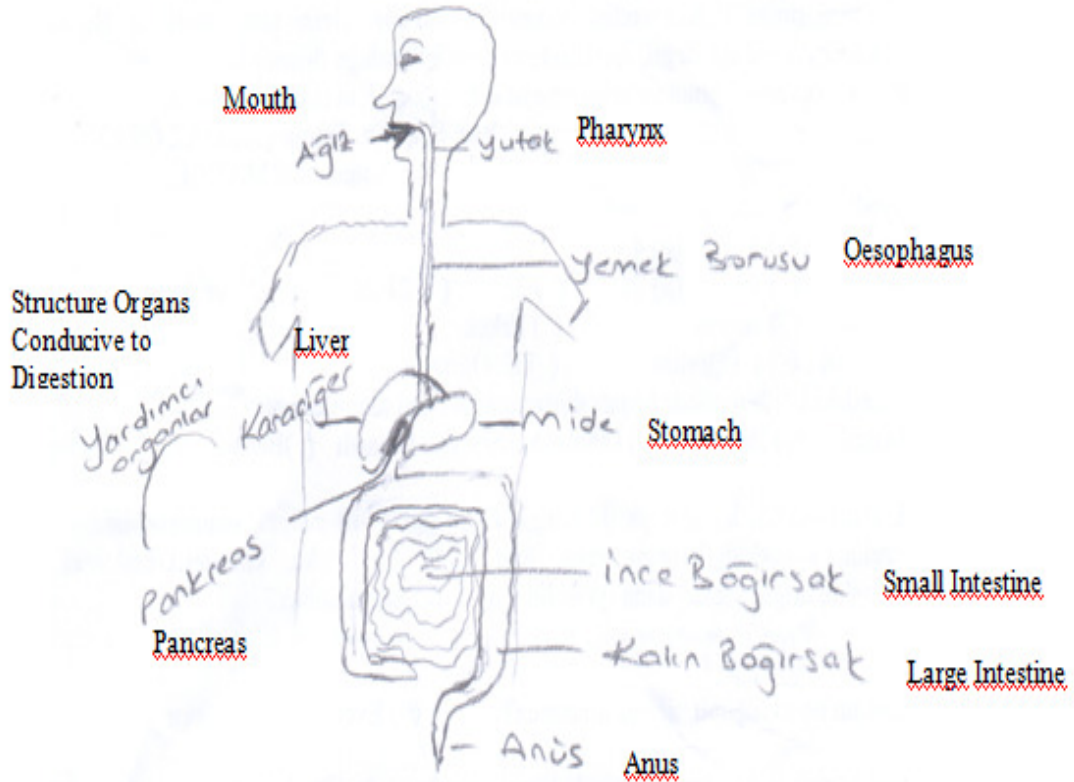 Mouth
Ağız
yutak
Pharynx
Yemek Borusu
Oesophagus
Structure Organs
Conducive to
Digestion
Liver
Yardımcı
organlar
Karaciğer
Mide
Stomach
Pankreas
Pancreas
İnce Bağırsak
Small Intestine
Kalın Bağırsak
Large Intestine
Anüs
Anus